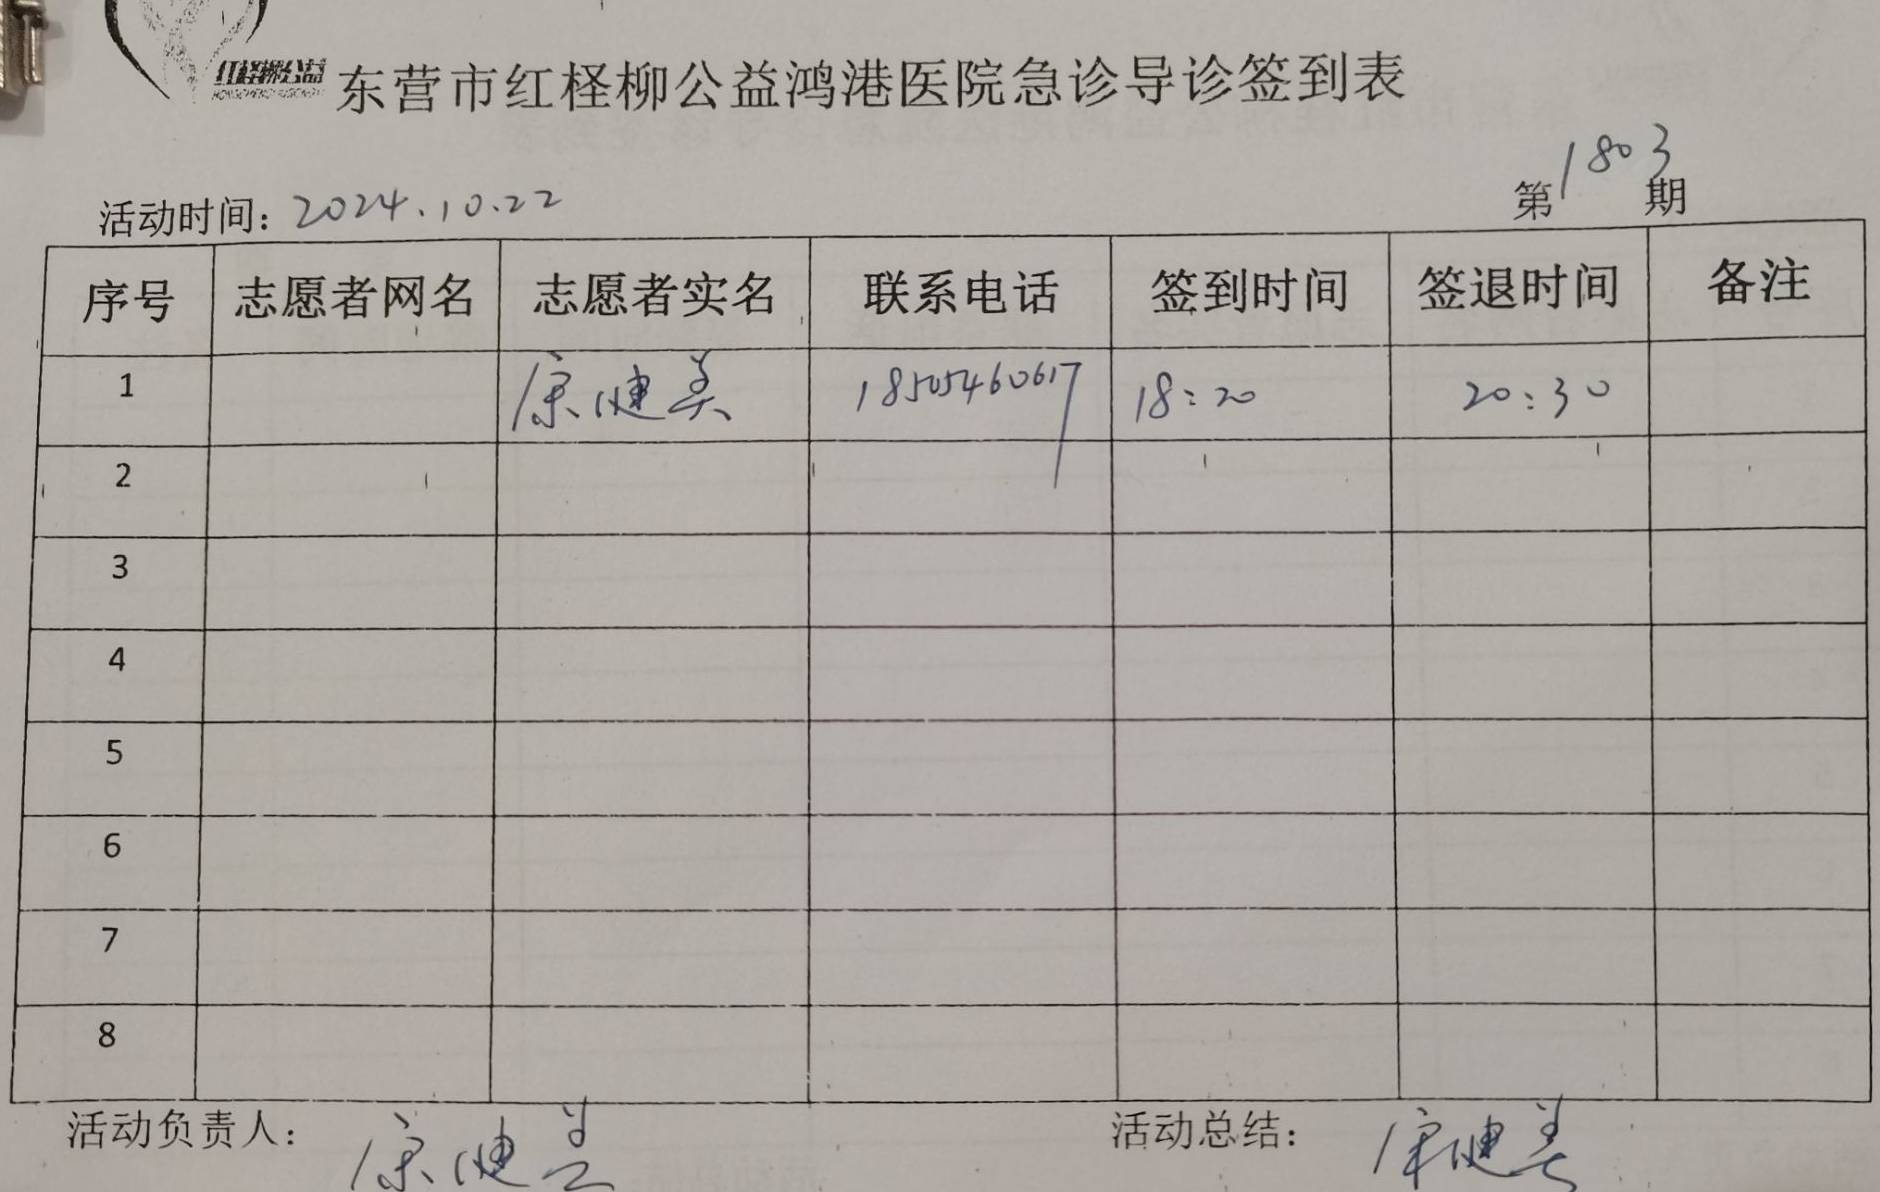 红柽柳公益
东营市红柽柳公益鸿港医院急诊导诊签到表
第1803期
活动时间：2024.10.22
序号 志愿者网名 志愿者实名 联系电话 签到时间 签退时间 备注
1 康健美 18505460617 18:20 20:30
2
3
4
5
6
7
8
活动负责人： 康健美 活动总结： 康健美